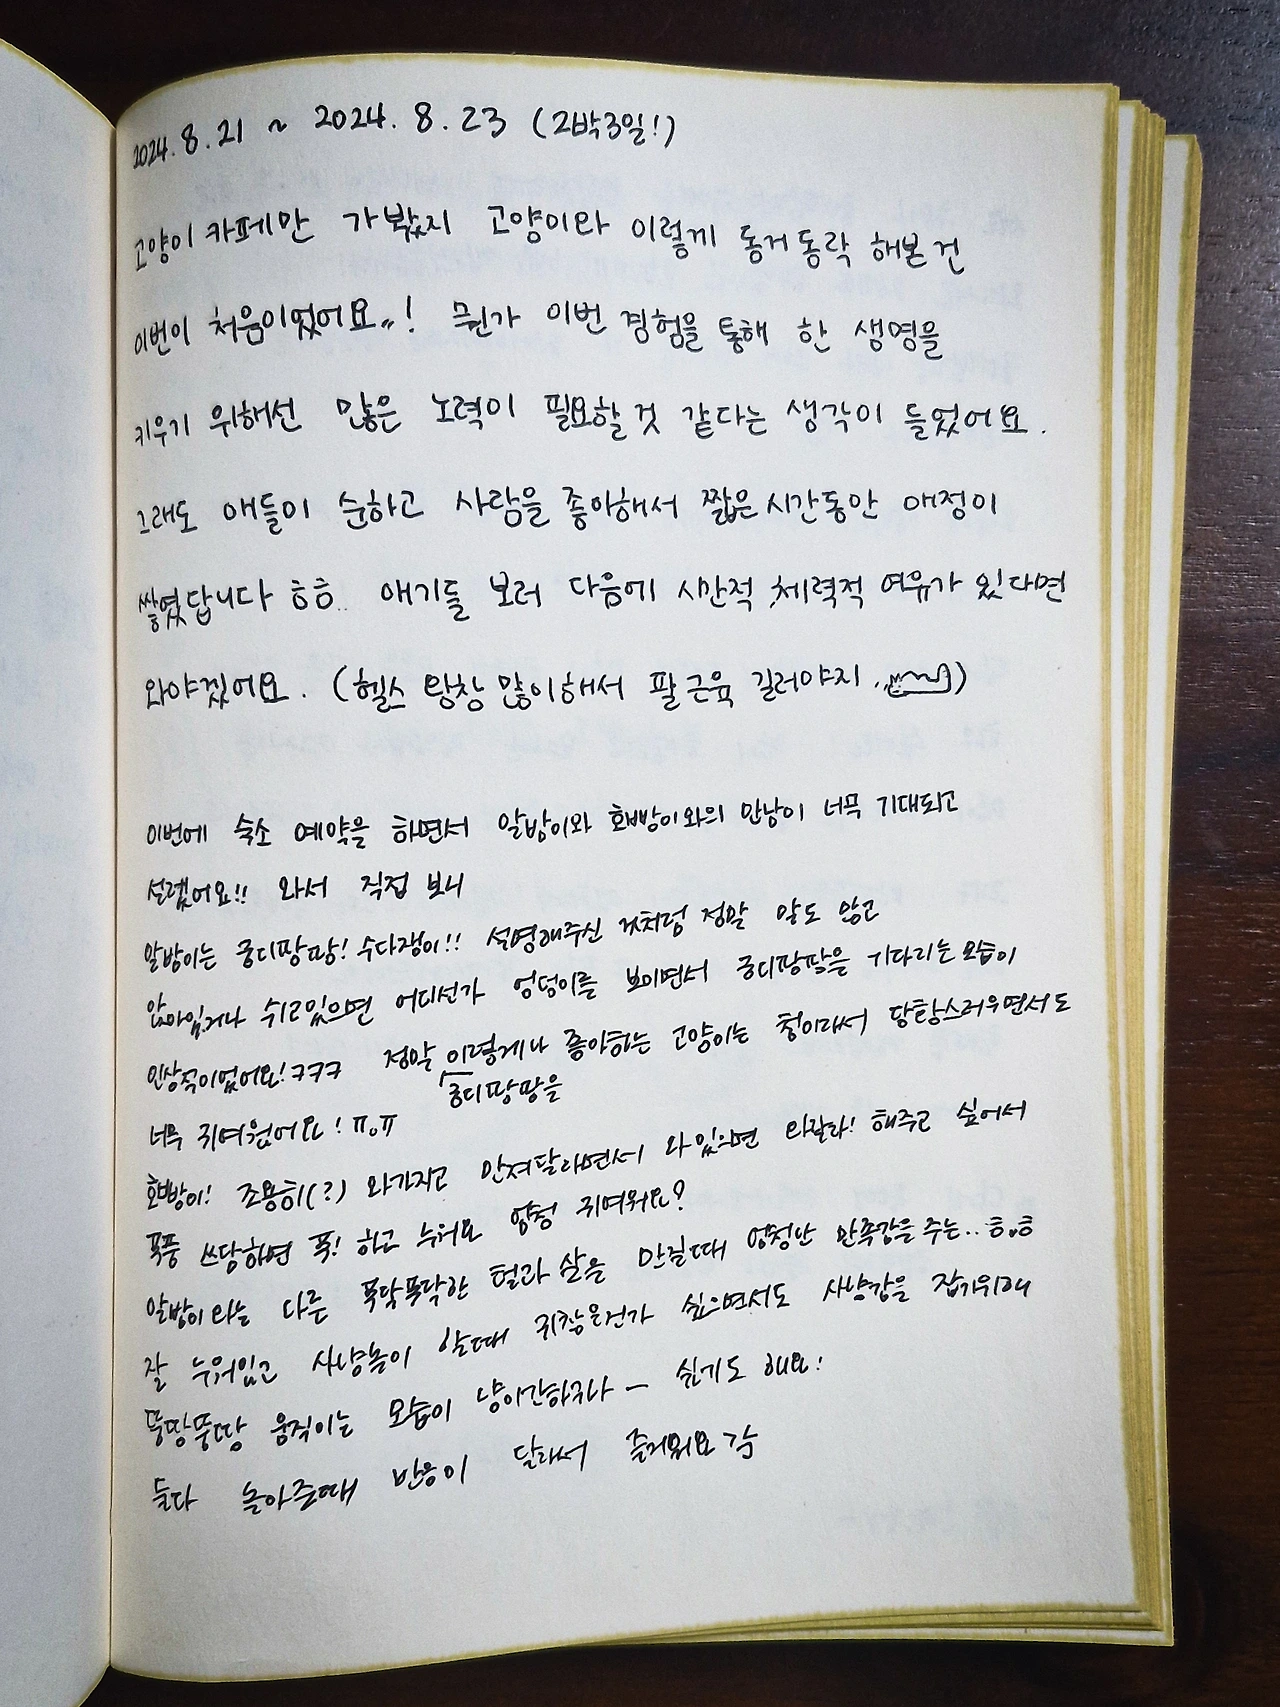 2024.8.21 ~ 2024.8.23 (2박3일!)
고양이 카페만 가봤지 고양이와 이렇게 동거동락 해본 건
이번이 처음이었어요..! 뭔가 이번 경험을 통해 한 생명을
키우기 위해선 많은 노력이 필요할 것 같다는 생각이 들었어요.
그래도 애들이 순하고 사람을 좋아해서 짧은 시간동안 애정이
쌓였답니다 ㅎㅎ.. 애기들 보러 다음에 시간적 체력적 여유가 있다면
와야겠어요. (헬스 왕창 많이해서 팔 근육 길러야지..)
이번에 숙소 예약을 하면서 알방이와 호빵이와의 만남이 너무 기대되고
설렜어요!! 와서 직접 보니
알방이는 궁디팡팡! 수다쟁이!! 설명해주신 것처럼 정말 말도 많고
앉아있거나 쉬고있으면 어디선가 엉덩이를 보이면서 궁디팡팡을 기다리는 모습이
인상적이었어요!ㅋㅋㅋ 정말 이렇게나 좋아하는 고양이는 첨이라서 당황스러우면서도
궁디팡팡을
너무 귀여웠어요! ㅠ.ㅠ
호빵이! 조용히(?) 와가지고 만져달라면서 와있으면 와랄라! 해주고 싶어서
폭풍 쓰담하면 푹! 하고 누워요 엄청 귀여워요?
알방이와는 다른 푹닥푹닥한 털과 살은 만질때 엄청난 만족감을 주는..ㅎ.ㅎ
잘 누워있고 사냥놀이 할때 귀찮은건가 싶으면서도 사냥감을 잡기위해
뚱땅뚱땅 움직이는 모습이 냥이긴하구나 — 싶기도 해요!
둘다 놀아줄때 반응이 달라서 즐거워요 각